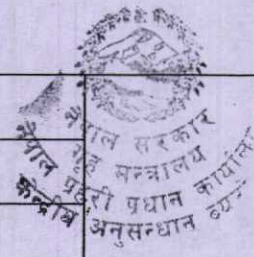 नेपाल सरकार
गृह मन्त्रालय
नेपाल प्रहरी प्रधान कार्यालय
केन्द्रीय अनुसन्धान